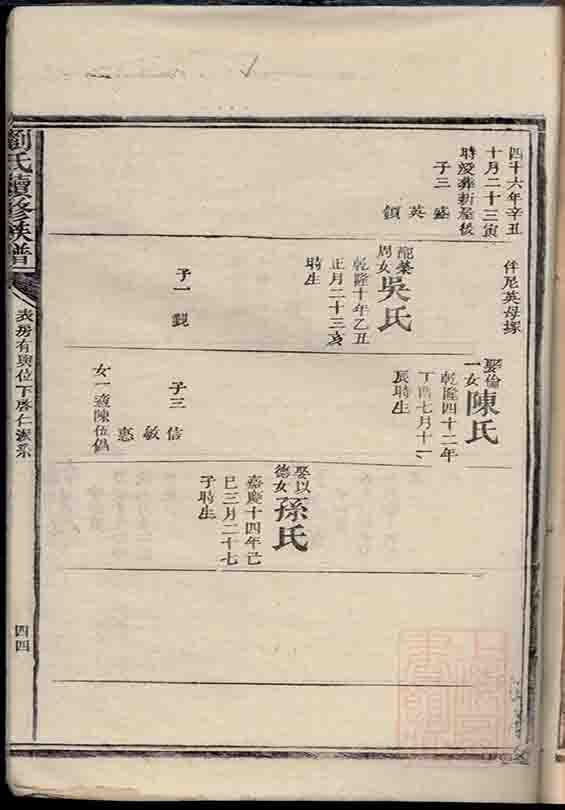 四十六年辛丑
十月二十三寅
時歿葬新屋後
子三
盛
英
鎮
伴尼英母塚
配榮
周女
吳氏
乾隆十年乙丑
正月二十三亥
時生
子一
娶倫
一女
陳氏
乾隆四十二年
丁酉七月十一
辰時生
子三
信
敏
惠
女一適陳伍倡
娶以
德女
孫氏
嘉慶十四年己
巳三月二十七
子時生
劉氏續修族譜
表房有與位下啓仁派系
四四